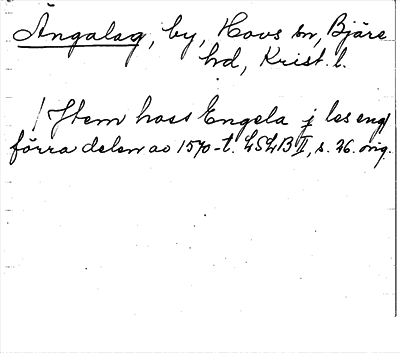 Ängalag, by, Hovs sn, Bjäre
hd, Krist. l.
/Item hoss Engela j les eng/
förra delen av 1570-t. LSLB II, s. 26. orig.